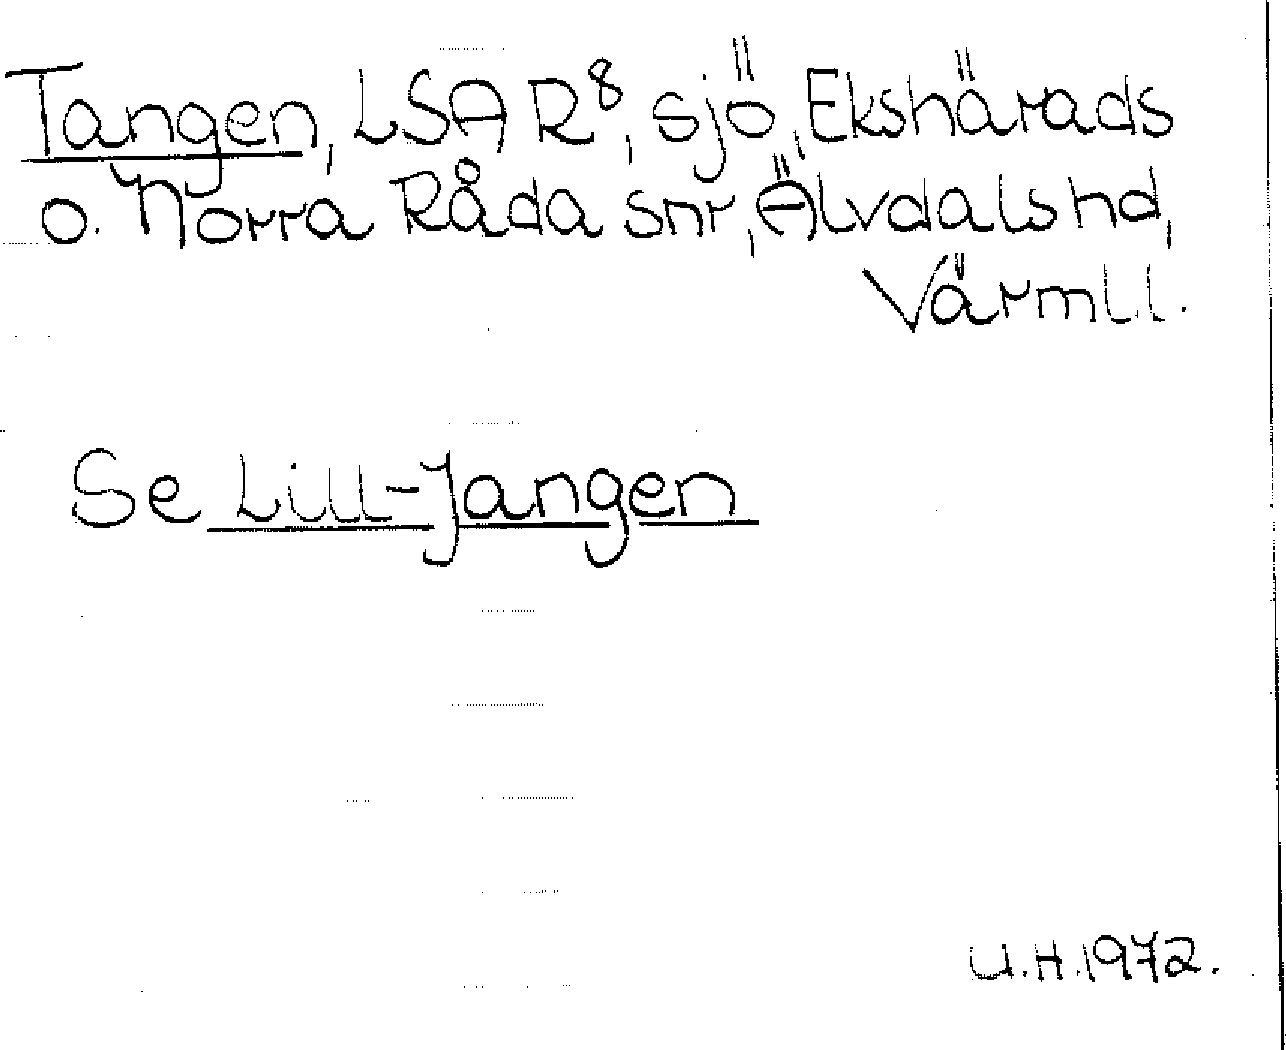 Tangen, LSA R⁸, sjö, Ekshärads
o. Norra Råda snr, Älvdals hd,
Värml.l.
Se Lill-Jangen
U.H.1972.